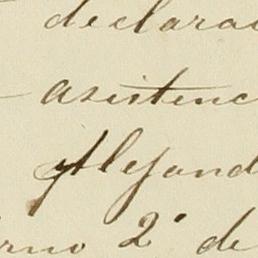 declara
asistenc
Alejand
rno 2º de